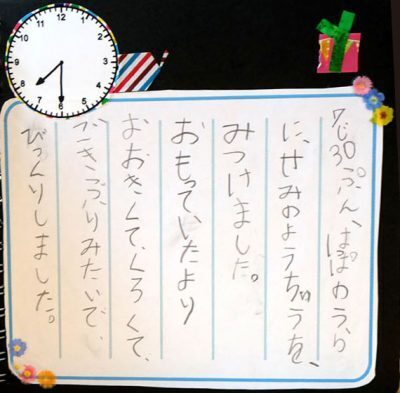 12
1
2
3
4
5
6
7
8
9
10
11
7じ30ぷん、うら
に、せみのようちゅうを、
みつけました。
おもっていたより
おおきくて、くろくて、
ごきぶりみたいで、
びっくりしました。